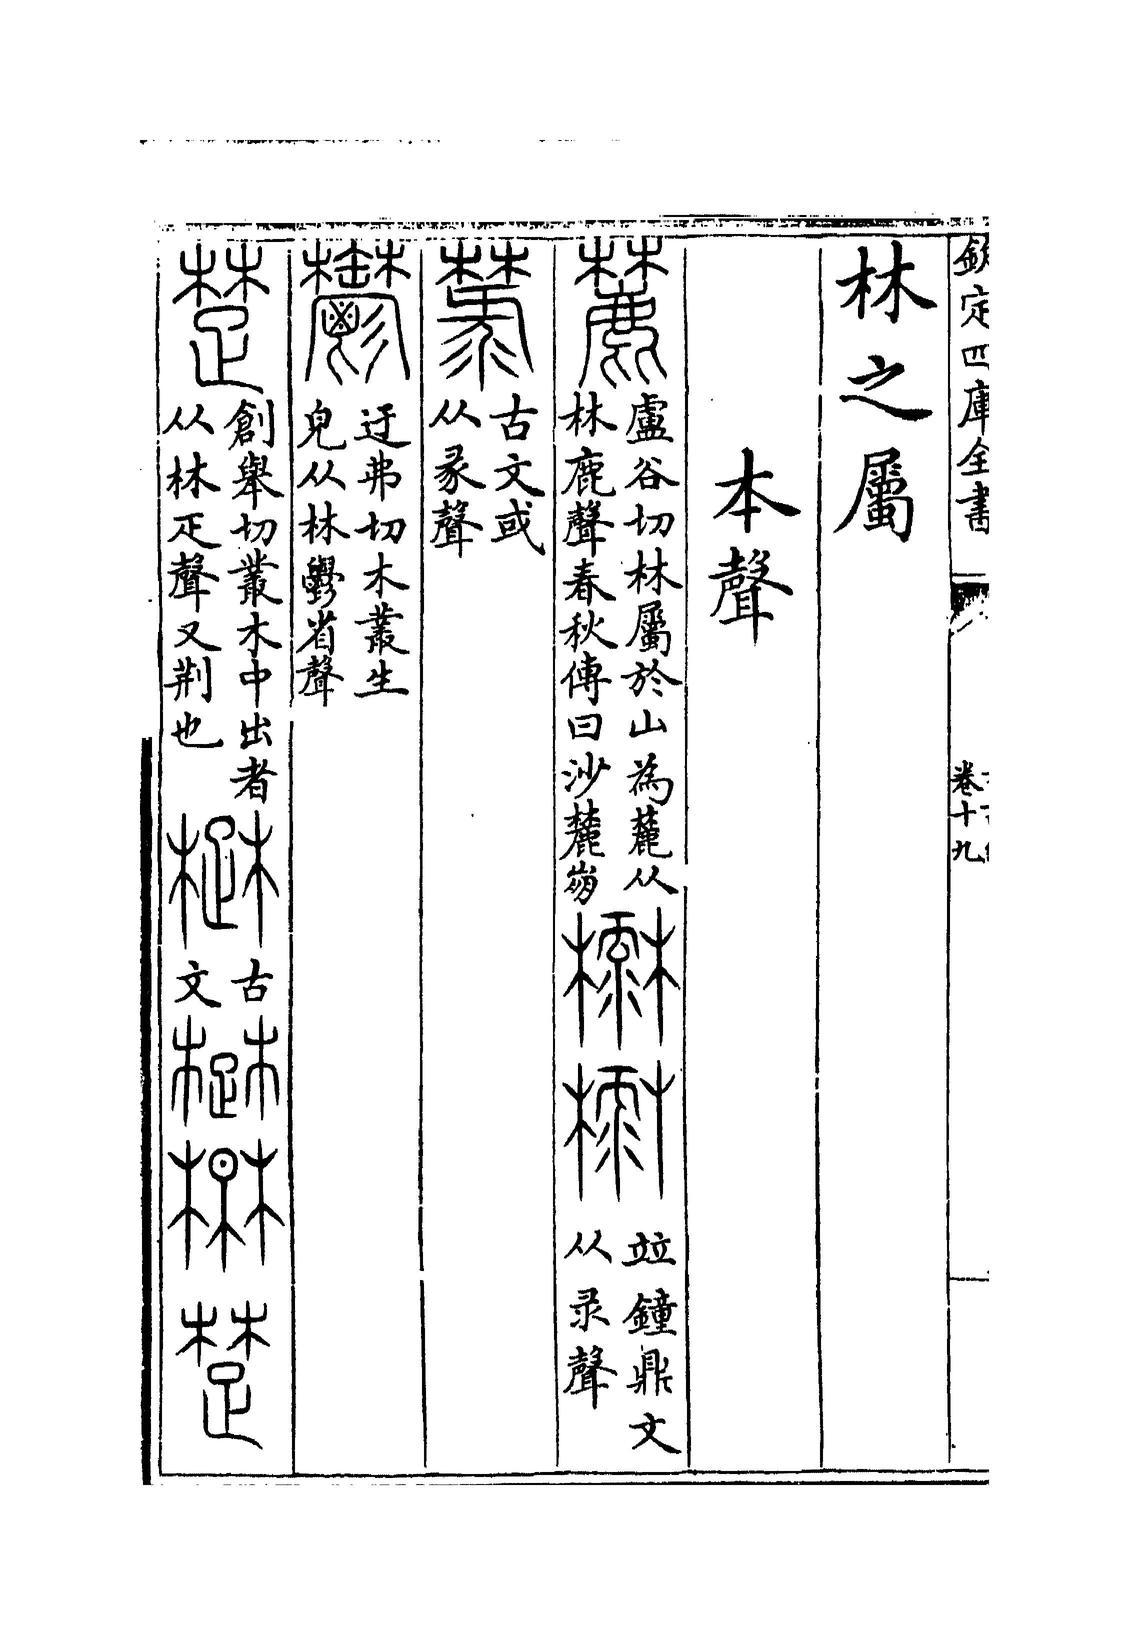 欽定四庫全書
卷十九
林之屬
本聲
麓
盧谷切林屬於山為麓从
林鹿聲春秋傳曰沙麓崩
竝鐘鼎文
从录聲
古文或
从彖聲
鬱
迂弗切木叢生
皃从林省聲
楚
創舉切叢木中出者
从林疋聲又荆也
古
文